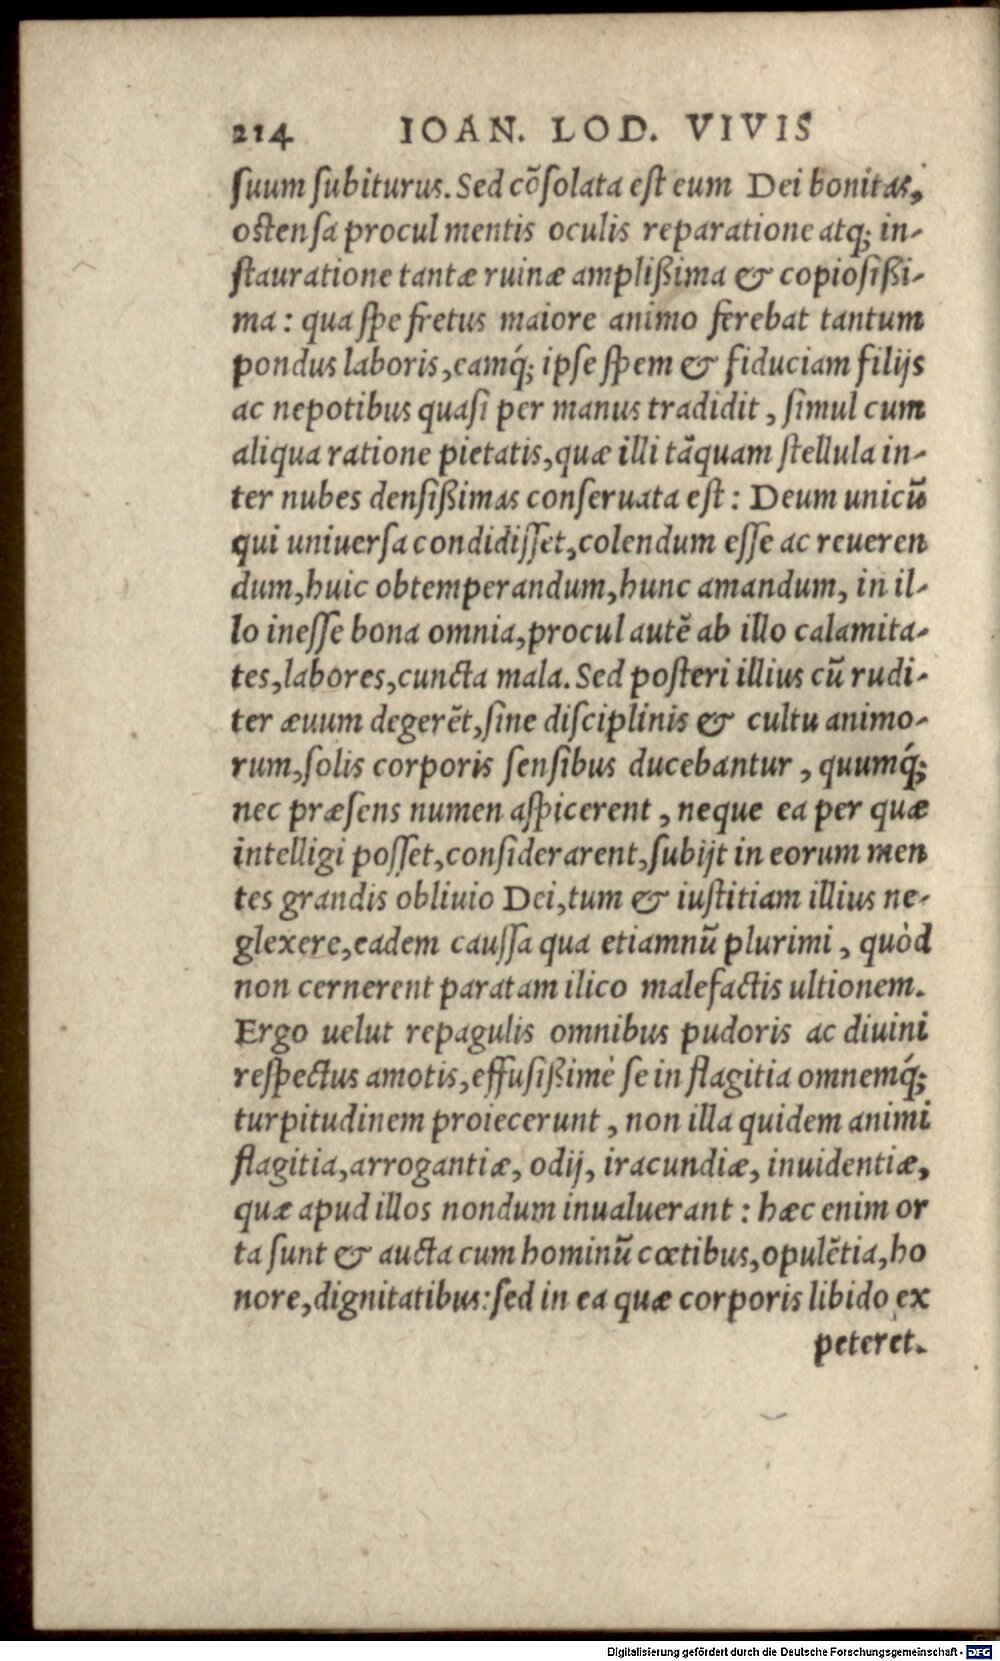 214 IOAN. LOD. VIVIS
suum subiturus. Sed cõsolata est eum Dei bonitas,
ostensa procul mentis oculis reparatione atq; in-
stauratione tantæ ruinæ amplißima & copiosißi-
ma: qua spe fretus maiore animo ferebat tantum
pondus laboris, eamq́; ipse spem & fiduciam filijs
ac nepotibus quasi per manus tradidit, simul cum
aliqua ratione pietatis, quæ illi tãquam stellula in-
ter nubes densißimas conseruata est: Deum unicũ
qui uniuersa condidisset, colendum esse ac reueren
dum, huic obtemperandum, hunc amandum, in il-
lo inesse bona omnia, procul autẽ ab illo calamita-
tes, labores, cuncta mala. Sed posteri illius cũ rudi-
ter æuum degerẽt, sine disciplinis & cultu animo-
rum, solis corporis sensibus ducebantur, quumq́;
nec præsens numen aspicerent, neque ea per quæ
intelligi posset, considerarent, subijt in eorum men
tes grandis obliuio Dei, tum & iustitiam illius ne-
glexere, eadem caussa qua etiamnũ plurimi, quòd
non cernerent paratam ilico malefactis ultionem.
Ergo uelut repagulis omnibus pudoris ac diuini
respectus amotis, effusißimè se in flagitia omnemq́;
turpitudinem proiecerunt, non illa quidem animi
flagitia, arrogantiæ, odij, iracundiæ, inuidentiæ,
quæ apud illos nondum inualuerant: hæc enim or
ta sunt & aucta cum hominũ cœtibus, opulẽtia, ho
nore, dignitatibus: sed in ea quæ corporis libido ex
peteret.
Digitalisierung gefördert durch die Deutsche Forschungsgemeinschaft - DFG